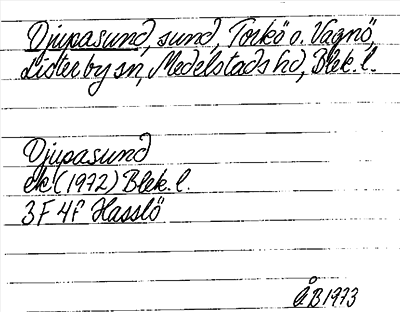 Djupasund, sund, Torkö o. Vagnö,
Listerby sn, Medelstads hd, Blek. l.
Djupasund
ek (1972) Blek. l.
3F 4f Hasslö
ÅB 1973